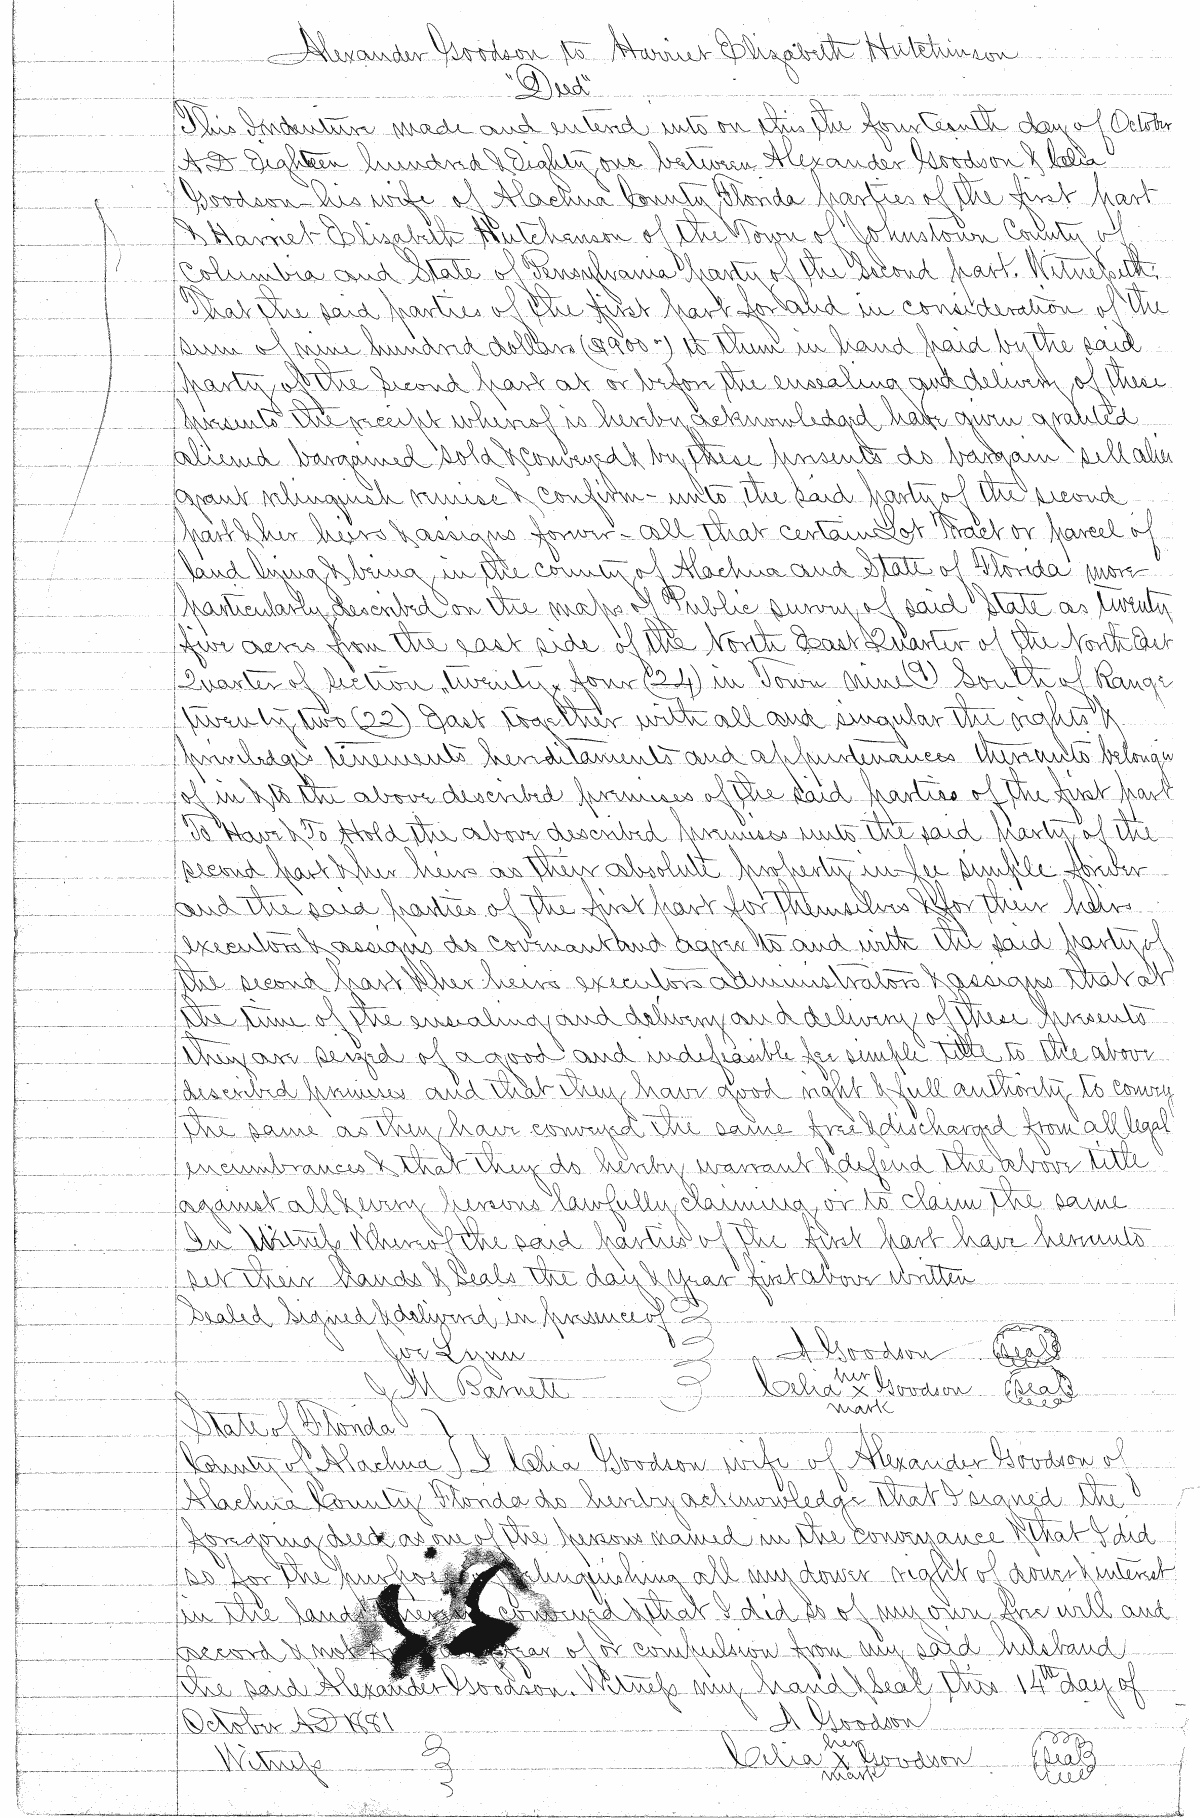 Alexander Goodson to Harriet Elizabeth Hutchinson
"Deed"
This Indenture made and entered into on this the fourteenth day of October
A D Eighteen hundred & Eighty one between Alexander Goodson & Celia
Goodson his wife of Alachua County Florida parties of the first part
& Harriet Elizabeth Hutchenson of the Town of Johnstown County of
Columbia and State of Pensylvania party of the Second part. Witnesseth:
That the said parties of the first part for and in consideration of the
sum of nine hundred dollars ($900.-) to them in hand paid by the said
party of the Second part at or before the ensealing and delivery of these
presents the receipt whereof is hereby acknowledged have given granted
aliened bargained sold & conveyed & by these presents do bargain sell alien
grant relinquish remise & confirm - unto the said party of the second
part & her heirs & assigns forever - all that certain Lot Tract or parcel of
land lying & being in the county of Alachua and State of Florida more
particularly described on the maps of Public survey of said State as twenty
five acres from the east side of the North East Quarter of the North East
Quarter of Section twenty four (24) in Town nine (9) South of Range
twenty two (22) East together with all and singular the rights &
priviledges tenements hereditaments and appurtenances thereunto belongin
of in & to the above described premises of the said parties of the first part
To Have & To Hold the above described premises unto the said party of the
second part & her heirs as their absolute property in fee simple forever
and the said parties of the first part for themselves & for their heirs
executors & assigns do covenant and agree to and with the said party of
the second part & her heirs executors administrators & assigns that at
the time of the ensealing and delivery and delivery of these presents
they are seized of a good and indefeasible fee simple title to the above
described premises and that they have good right & full authority to convey
the same as they have conveyed the same free & discharged from all legal
encumbrances & that they do hereby warrant & defend the above title
against all & every persons lawfully claiming or to claim the same
In Witness Whereof the said parties of the first part have hereunto
set their hands & Seals the day & year first above written
Sealed Signed & delivered in presence of
Joe Lynn A Goodson Seal
J M Barnett Celia her x mark Goodson Seal
State of Florida
County of Alachua } I Celia Goodson wife of Alexander Goodson of
Alachua County Florida do hereby acknowledge that I signed the
foregoing deed as one of the persons named in the conveyance & that I did
so for the purpose relinquishing all my dower right of dower & interest
in the land conveyed & that I did so of my own free will and
accord & not fear of or compulsion from my said husband
the said Alexander Goodson. Witness my hand & Seal this 14th day of
October A D 1881 A Goodson
Witness Celia her x mark Goodson Seal